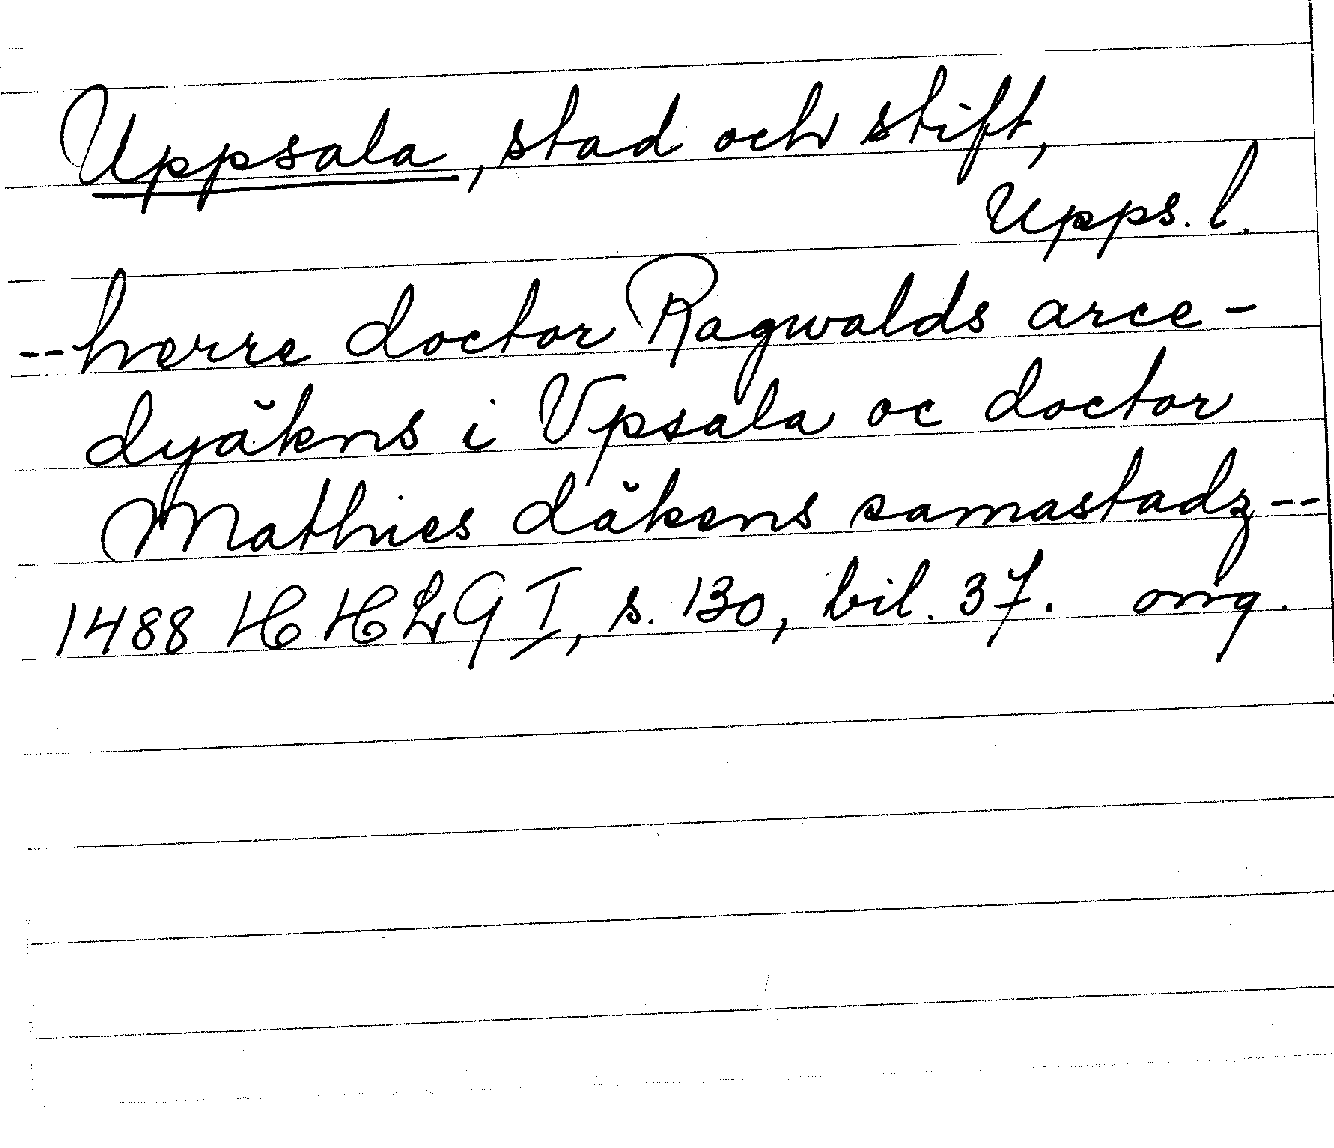 Uppsala, stad och stift,
Upps. l.
-- herre doctor Ragwalds arce-
dyäkns i Vpsala oc doctor
Mathies däkens samastadz --
1488 HHLG I, s. 130, bil. 37. orig.